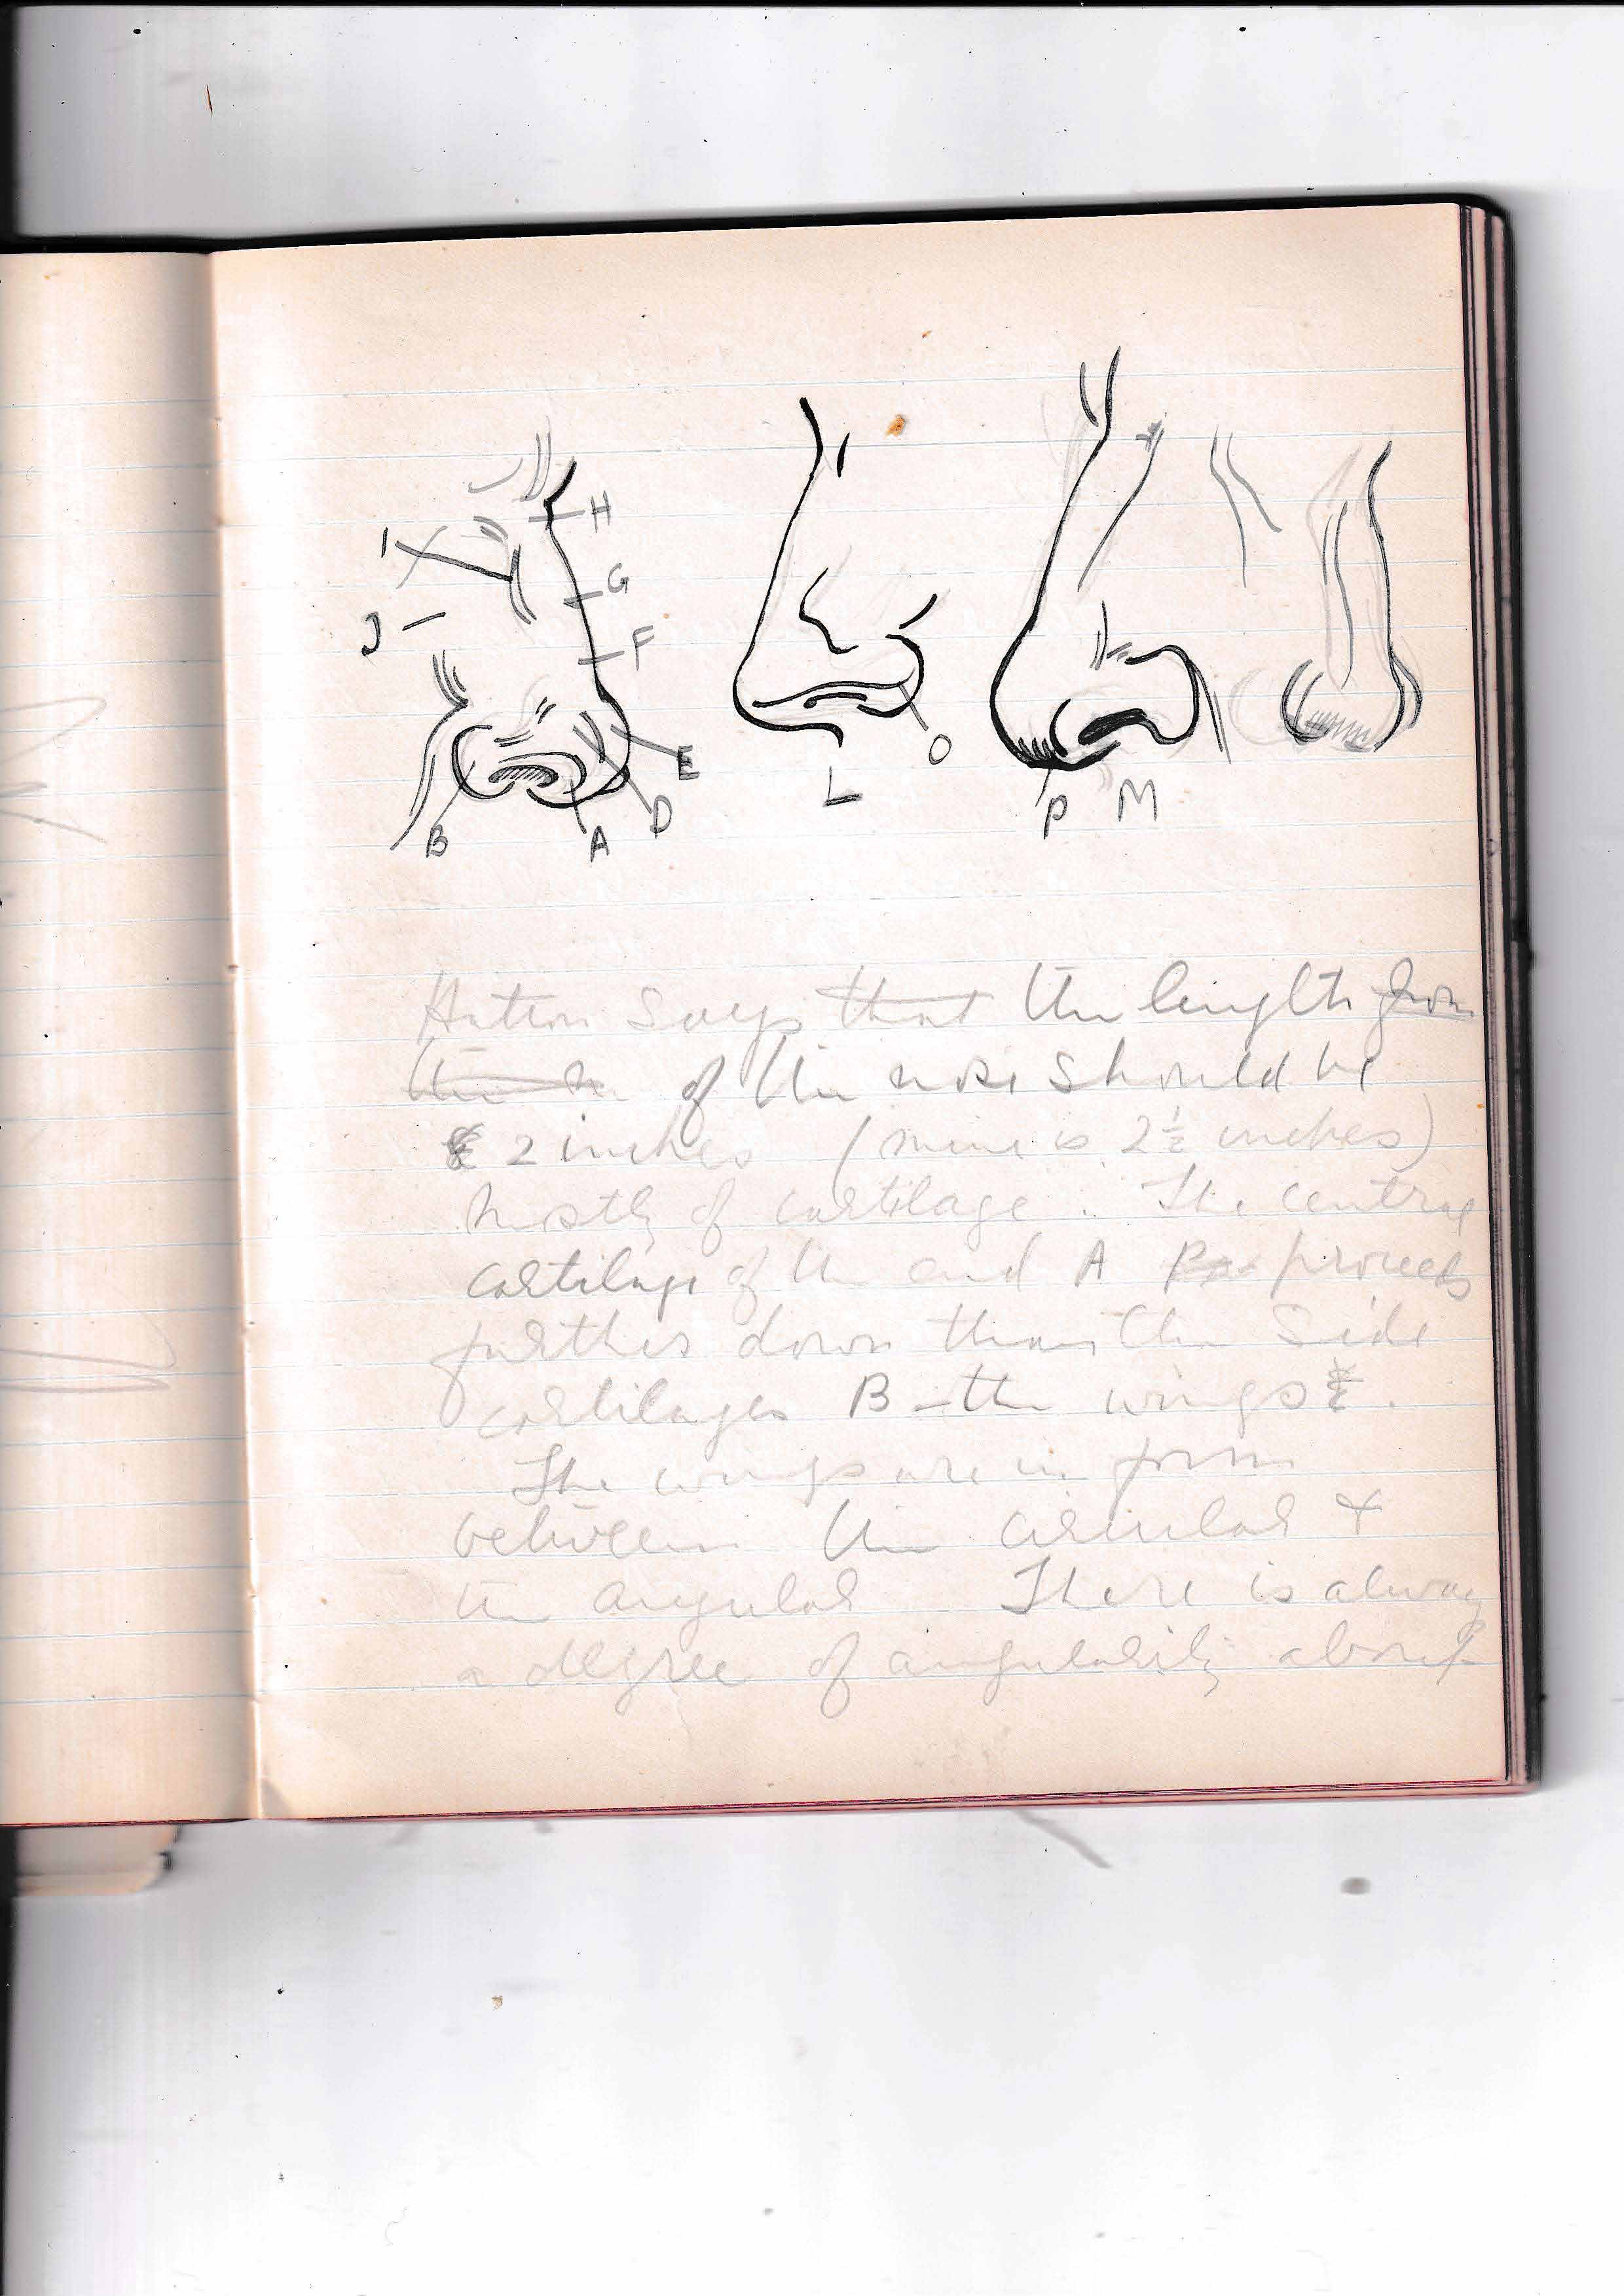 H
I
G
J
F
E
O
B
A
D
L
P
M
Hatton says that the length from
the n of the nose should be
2 inches (mine is 2½ inches)
mostly of cartilage. The central
cartilage of the end A proceeds
further down than the side
cartilages B - the wings
The wings are in form
between the circular &
the angular There is always
a degree of angularity about